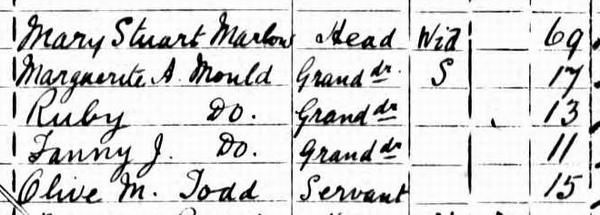 Mary Stuart Marlow Head Wid 69
Marguerite A. Mould Grand dr. S 17
Ruby Do. Grand dr 13
Fanny J. Do. Grand dr 11
Olive M. Todd Servant 15